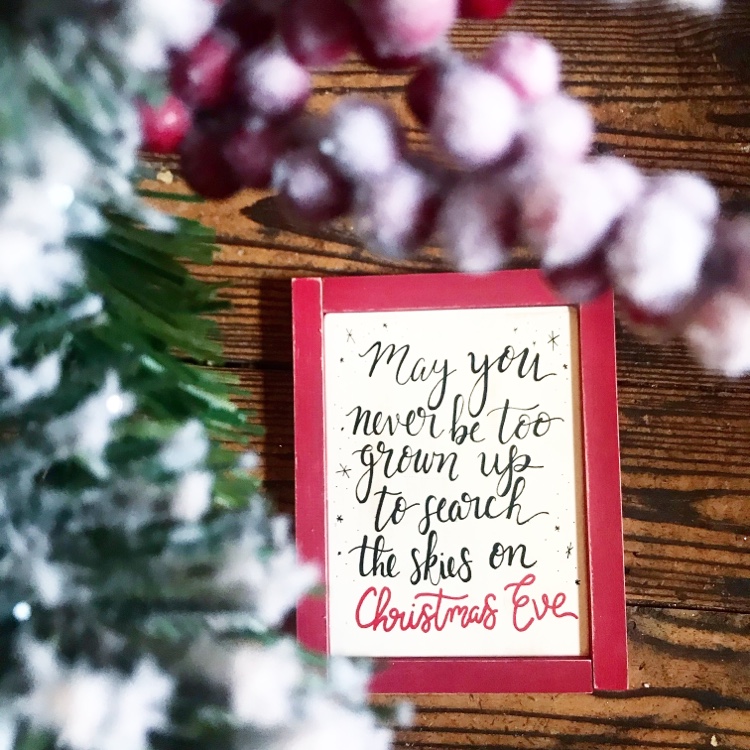 May you
never be too
grown up
to search
the skies on
Christmas Eve